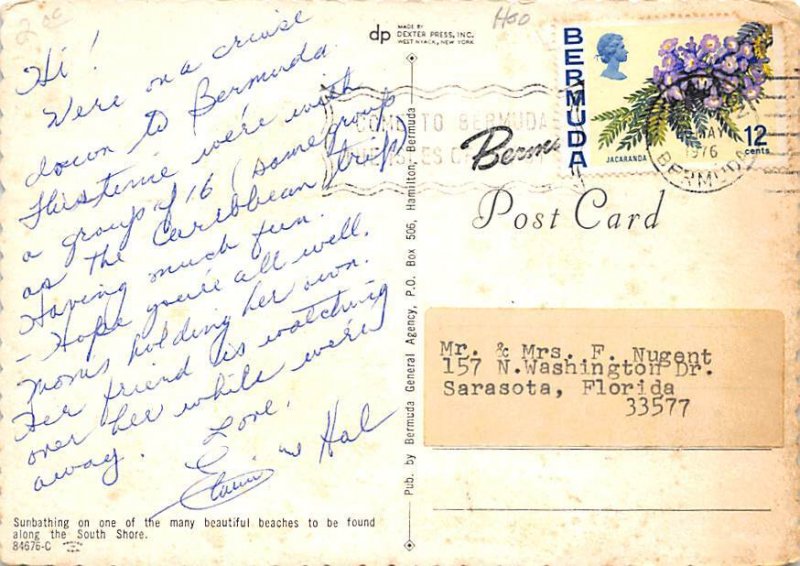 Hi!
We're on a cruise
down to Bermuda.
This time we're with
a group of 16 (same group
as the Caribbean trip)
Having much fun.
- Hope you're all well.
Mom's holding her own.
Her friend is watching
over her while we're
away. Love,
& Hal
Sunbathing on one of the many beautiful beaches to be found
along the South Shore.
84676-C
Pub. by Bermuda General Agency, P.O. Box 506, Hamilton, Bermuda
dp MADE BY
DEXTER PRESS, INC.
WEST NYACK, NEW YORK
BERMUDA
JACARANDA
12
cents
COME TO BERMUDA
MAY
1976
BERMUDA
Post Card
Mr. & Mrs. F. Nugent
157 N.Washington Dr.
Sarasota, Florida
33577